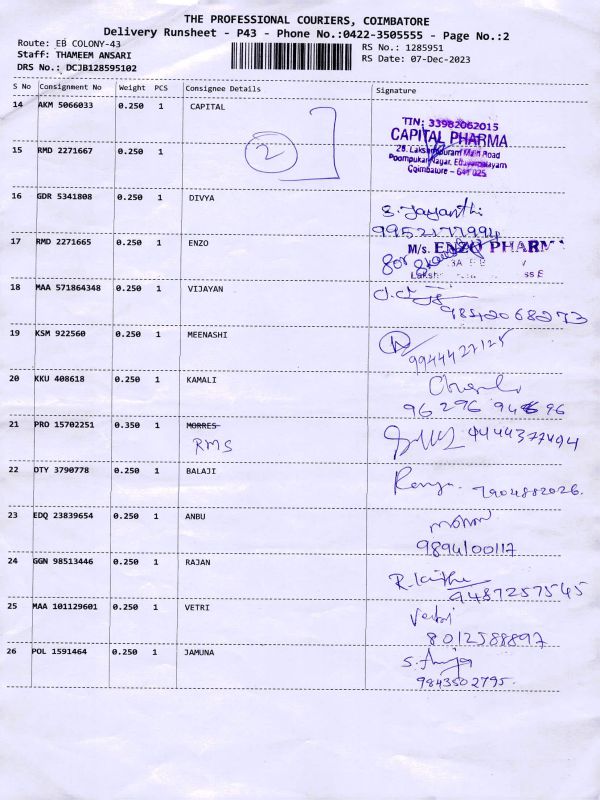 THE PROFESSIONAL COURIERS, COIMBATORE
Delivery Runsheet - P43 - Phone No.:0422-3505555 - Page No.:2
Route: EB COLONY-43
RS No.: 1285951
Staff: THAMEEM ANSARI
RS Date: 07-Dec-2023
DRS No.: DCJB128595102
S No Consignment No Weight PCS Consignee Details Signature
14 AKM 5066033 0.250 1 CAPITAL
TIN: 33982062015
CAPITAL PHARMA
2
Main Road
Poompukar Nagar,
Coimbatore - 641 025
15 RMD 2271667 0.250 1
16 GDR 5341808 0.250 1 DIVYA
S. Jayanthi
9952177994
17 RMD 2271665 0.250 1 ENZO
M/s. ENZO PHARM
for
18 MAA 571864348 0.250 1 VIJAYAN
9842068273
19 KSM 922560 0.250 1 MEENASHI
9944427125
20 KKU 408618 0.250 1 KAMALI
21 PRO 15702251 0.350 1 MORRES
RMS
22 OTY 3790778 0.250 1 BALAJI
7904882026.
23 EDQ 23839654 0.250 1 ANBU
9894100117
24 GGN 98513446 0.250 1 RAJAN
9487257545
25 MAA 101129601 0.250 1 VETRI
Vetri
8012588897
26 POL 1591464 0.250 1 JAMUNA
9843502795.